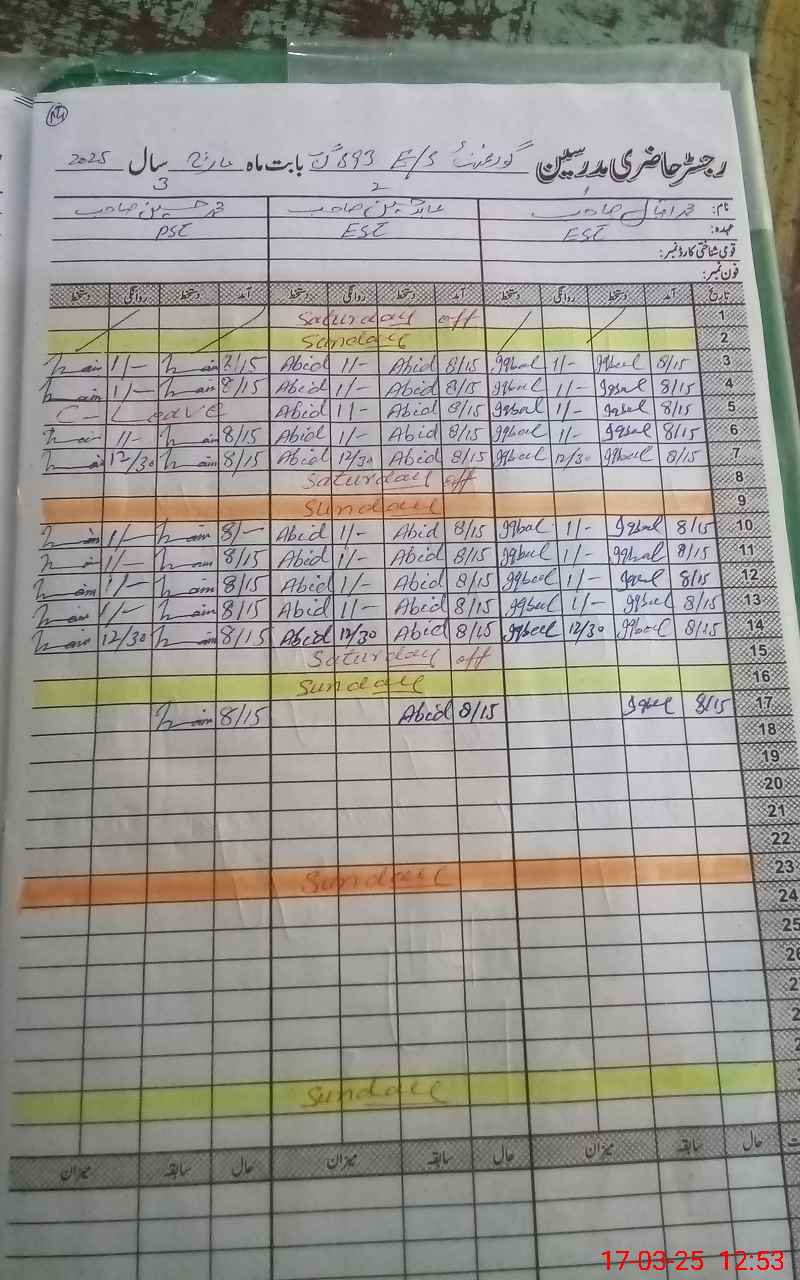 رجسٹر حاضری مدرسین گورنمنٹ E/S 593 گ ب بابت ماہ مارچ سال 2025
1 2 3
نام: محمد اقبال صاحب عابد حسین صاحب محمد حسین صاحب
عہدہ: EST EST PST
قومی شناختی کارڈ نمبر:
فون نمبر:
تاریخ آمد دستخط روانگی دستخط آمد دستخط روانگی دستخط آمد دستخط روانگی دستخط
1 Saturday off
2 Sunday
3 8/15 Iqbal 1/- Iqbal 8/15 Abid 1/- Abid 8/15 1/-
4 8/15 Iqbal 1/- Iqbal 8/15 Abid 1/- Abid 8/15 1/-
5 8/15 Iqbal 1/- Iqbal 8/15 Abid 1/- Abid C-Leave
6 8/15 Iqbal 1/- Iqbal 8/15 Abid 1/- Abid 8/15 1/-
7 8/15 Iqbal 12/30 Iqbal 8/15 Abid 12/30 Abid 8/15 12/30
8 Saturday off
9 Sunday
10 8/15 Iqbal 1/- Iqbal 8/15 Abid 1/- Abid 8/- 1/-
11 8/15 Iqbal 1/- Iqbal 8/15 Abid 1/- Abid 8/15 1/-
12 8/15 Iqbal 1/- Iqbal 8/15 Abid 1/- Abid 8/15 1/-
13 8/15 Iqbal 1/- Iqbal 8/15 Abid 1/- Abid 8/15 1/-
14 8/15 Iqbal 12/30 Iqbal 8/15 Abid 12/30 Abid 8/15 12/30
15 Saturday off
16 Sunday
17 8/15 Iqbal 8/15 Abid 8/15
18
19
20
21
22
23 Sunday
24
25
Sunday
حال سابقہ میزان حال سابقہ میزان حال سابقہ میزان
17-03-25 12:53